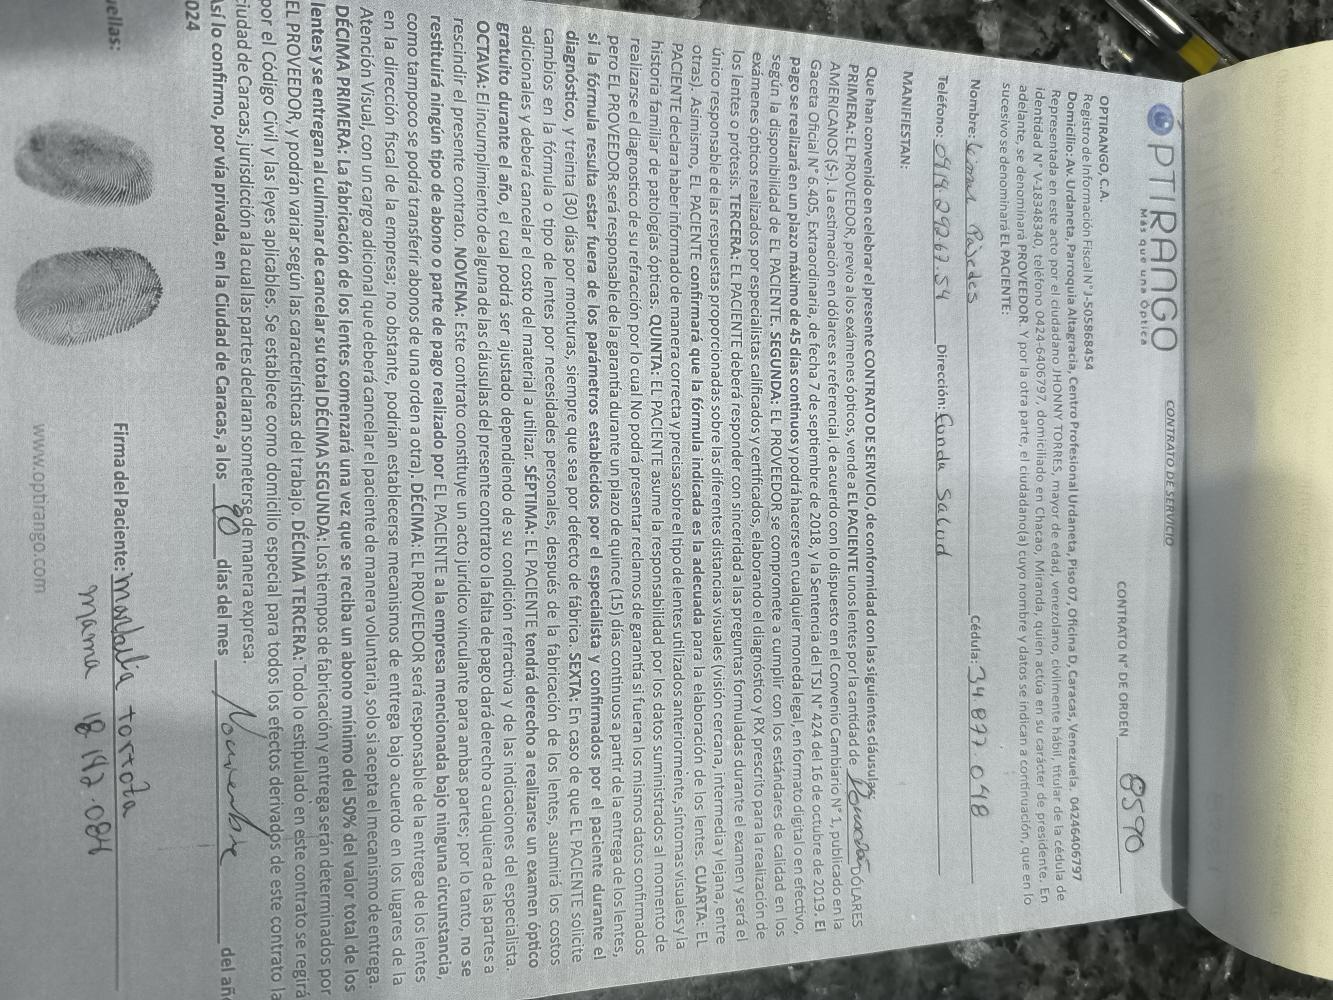 OPTIRANGO
Más que una Óptica
CONTRATO DE SERVICIO
CONTRATO N° DE ORDEN 8590
OPTIRANGO, C.A.
Registro de Información Fiscal N° J-505868454
Domicilio: Av. Urdaneta, Parroquia Altagracia, Centro Profesional Urdaneta, Piso 07, Oficina D, Caracas, Venezuela. 04246406797
Representada en este acto por el ciudadano JHONNY TORRES, mayor de edad, venezolano, civilmente hábil, titular de la cédula de
identidad N° V-18348340, teléfono 0424-6406797, domiciliado en Chacao, Miranda, quien actúa en su carácter de presidente. En
adelante, se denominará PROVEEDOR. Y por la otra parte, el ciudadano(a) cuyo nombre y datos se indican a continuación, que en lo
sucesivo se denominará EL PACIENTE:
Nombre: Paredes Cédula: 34.897.048
Teléfono: Dirección: Funda Salud
MANIFIESTAN:
Que han convenido en celebrar el presente CONTRATO DE SERVICIO, de conformidad con las siguientes cláusulas
PRIMERA: EL PROVEEDOR, previo a los exámenes ópticos, vende a EL PACIENTE unos lentes por la cantidad de DÓLARES
AMERICANOS ($-). La estimación en dólares es referencial, de acuerdo con lo dispuesto en el Convenio Cambiario N° 1, publicado en la
Gaceta Oficial N° 6.405, Extraordinaria, de fecha 7 de septiembre de 2018, y la Sentencia del TSJ N° 424 del 16 de octubre de 2019. El
pago se realizará en un plazo máximo de 45 días continuos y podrá hacerse en cualquier moneda legal, en formato digital o en efectivo,
según la disponibilidad de EL PACIENTE. SEGUNDA: EL PROVEEDOR se compromete a cumplir con los estándares de calidad en los
exámenes ópticos realizados por especialistas calificados y certificados, elaborando el diagnóstico y RX prescrito para la realización de
los lentes o prótesis. TERCERA: EL PACIENTE deberá responder con sinceridad a las preguntas formuladas durante el examen y será el
único responsable de las respuestas proporcionadas sobre las diferentes distancias visuales (visión cercana, intermedia y lejana, entre
otras). Asimismo, EL PACIENTE confirmará que la fórmula indicada es la adecuada para la elaboración de los lentes. CUARTA: EL
PACIENTE declara haber informado de manera correcta y precisa sobre el tipo de lentes utilizados anteriormente, síntomas visuales y la
historia familiar de patologías ópticas. QUINTA: EL PACIENTE asume la responsabilidad por los datos suministrados al momento de
realizarse el diagnostico de su refracción por lo cual No podrá presentar reclamos de garantía si fueran los mismos datos confirmados
pero EL PROVEEDOR será responsable de la garantía durante un plazo de quince (15) días continuos a partir de la entrega de los lentes,
si la fórmula resulta estar fuera de los parámetros establecidos por el especialista y confirmados por el paciente durante el
diagnóstico, y treinta (30) días por monturas, siempre que sea por defecto de fábrica. SEXTA: En caso de que EL PACIENTE solicite
cambios en la fórmula o tipo de lentes por necesidades personales, después de la fabricación de los lentes, asumirá los costos
adicionales y deberá cancelar el costo del material a utilizar. SÉPTIMA: EL PACIENTE tendrá derecho a realizarse un examen óptico
gratuito durante el año, el cual podrá ser ajustado dependiendo de su condición refractiva y de las indicaciones del especialista.
OCTAVA: El incumplimiento de alguna de las cláusulas del presente contrato o la falta de pago dará derecho a cualquiera de las partes a
rescindir el presente contrato. NOVENA: Este contrato constituye un acto jurídico vinculante para ambas partes; por lo tanto, no se
restituirá ningún tipo de abono o parte de pago realizado por EL PACIENTE a la empresa mencionada bajo ninguna circunstancia,
como tampoco se podrá transferir abonos de una orden a otra). DÉCIMA: EL PROVEEDOR será responsable de la entrega de los lentes
en la dirección fiscal de la empresa; no obstante, podrían establecerse mecanismos de entrega bajo acuerdo en los lugares de la
Atención Visual, con un cargo adicional que deberá cancelar el paciente de manera voluntaria, solo si acepta el mecanismo de entrega.
DÉCIMA PRIMERA: La fabricación de los lentes comenzará una vez que se reciba un abono mínimo del 50% del valor total de los
lentes y se entregan al culminar de cancelar su total DÉCIMA SEGUNDA: Los tiempos de fabricación y entrega serán determinados por
EL PROVEEDOR, y podrán variar según las características del trabajo. DÉCIMA TERCERA: Todo lo estipulado en este contrato se regirá
por el Código Civil y las leyes aplicables. Se establece como domicilio especial para todos los efectos derivados de este contrato la
ciudad de Caracas, jurisdicción a la cual las partes declaran someterse de manera expresa.
Así lo confirmo, por vía privada, en la Ciudad de Caracas, a los días del mes Nouvembre del año
2024
Firma del Paciente: tortota
mama 18.142.084
www.optirango.com